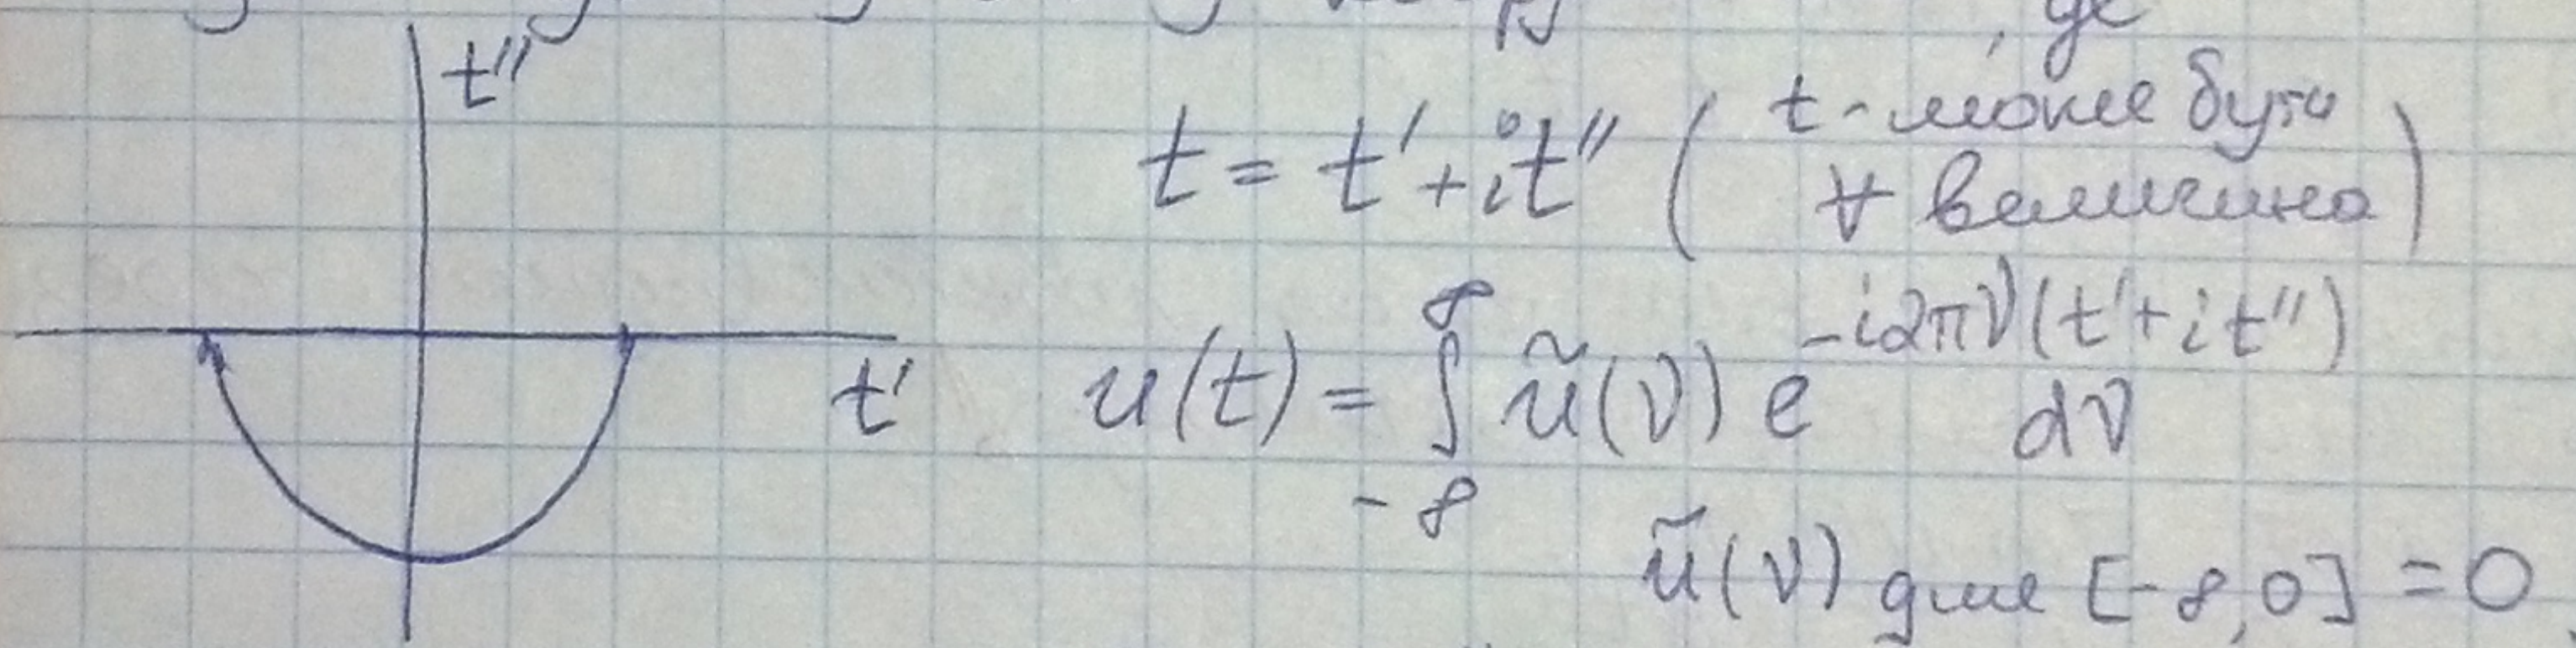 t''
, де
t = t' + it'' ( t - може бути ∀ величина )
t'
u(t) = ∫_{-∞}^{∞} ũ(ν) e^{-i2πν(t' + it'')} dν
ũ(ν) для [-∞, 0] = 0